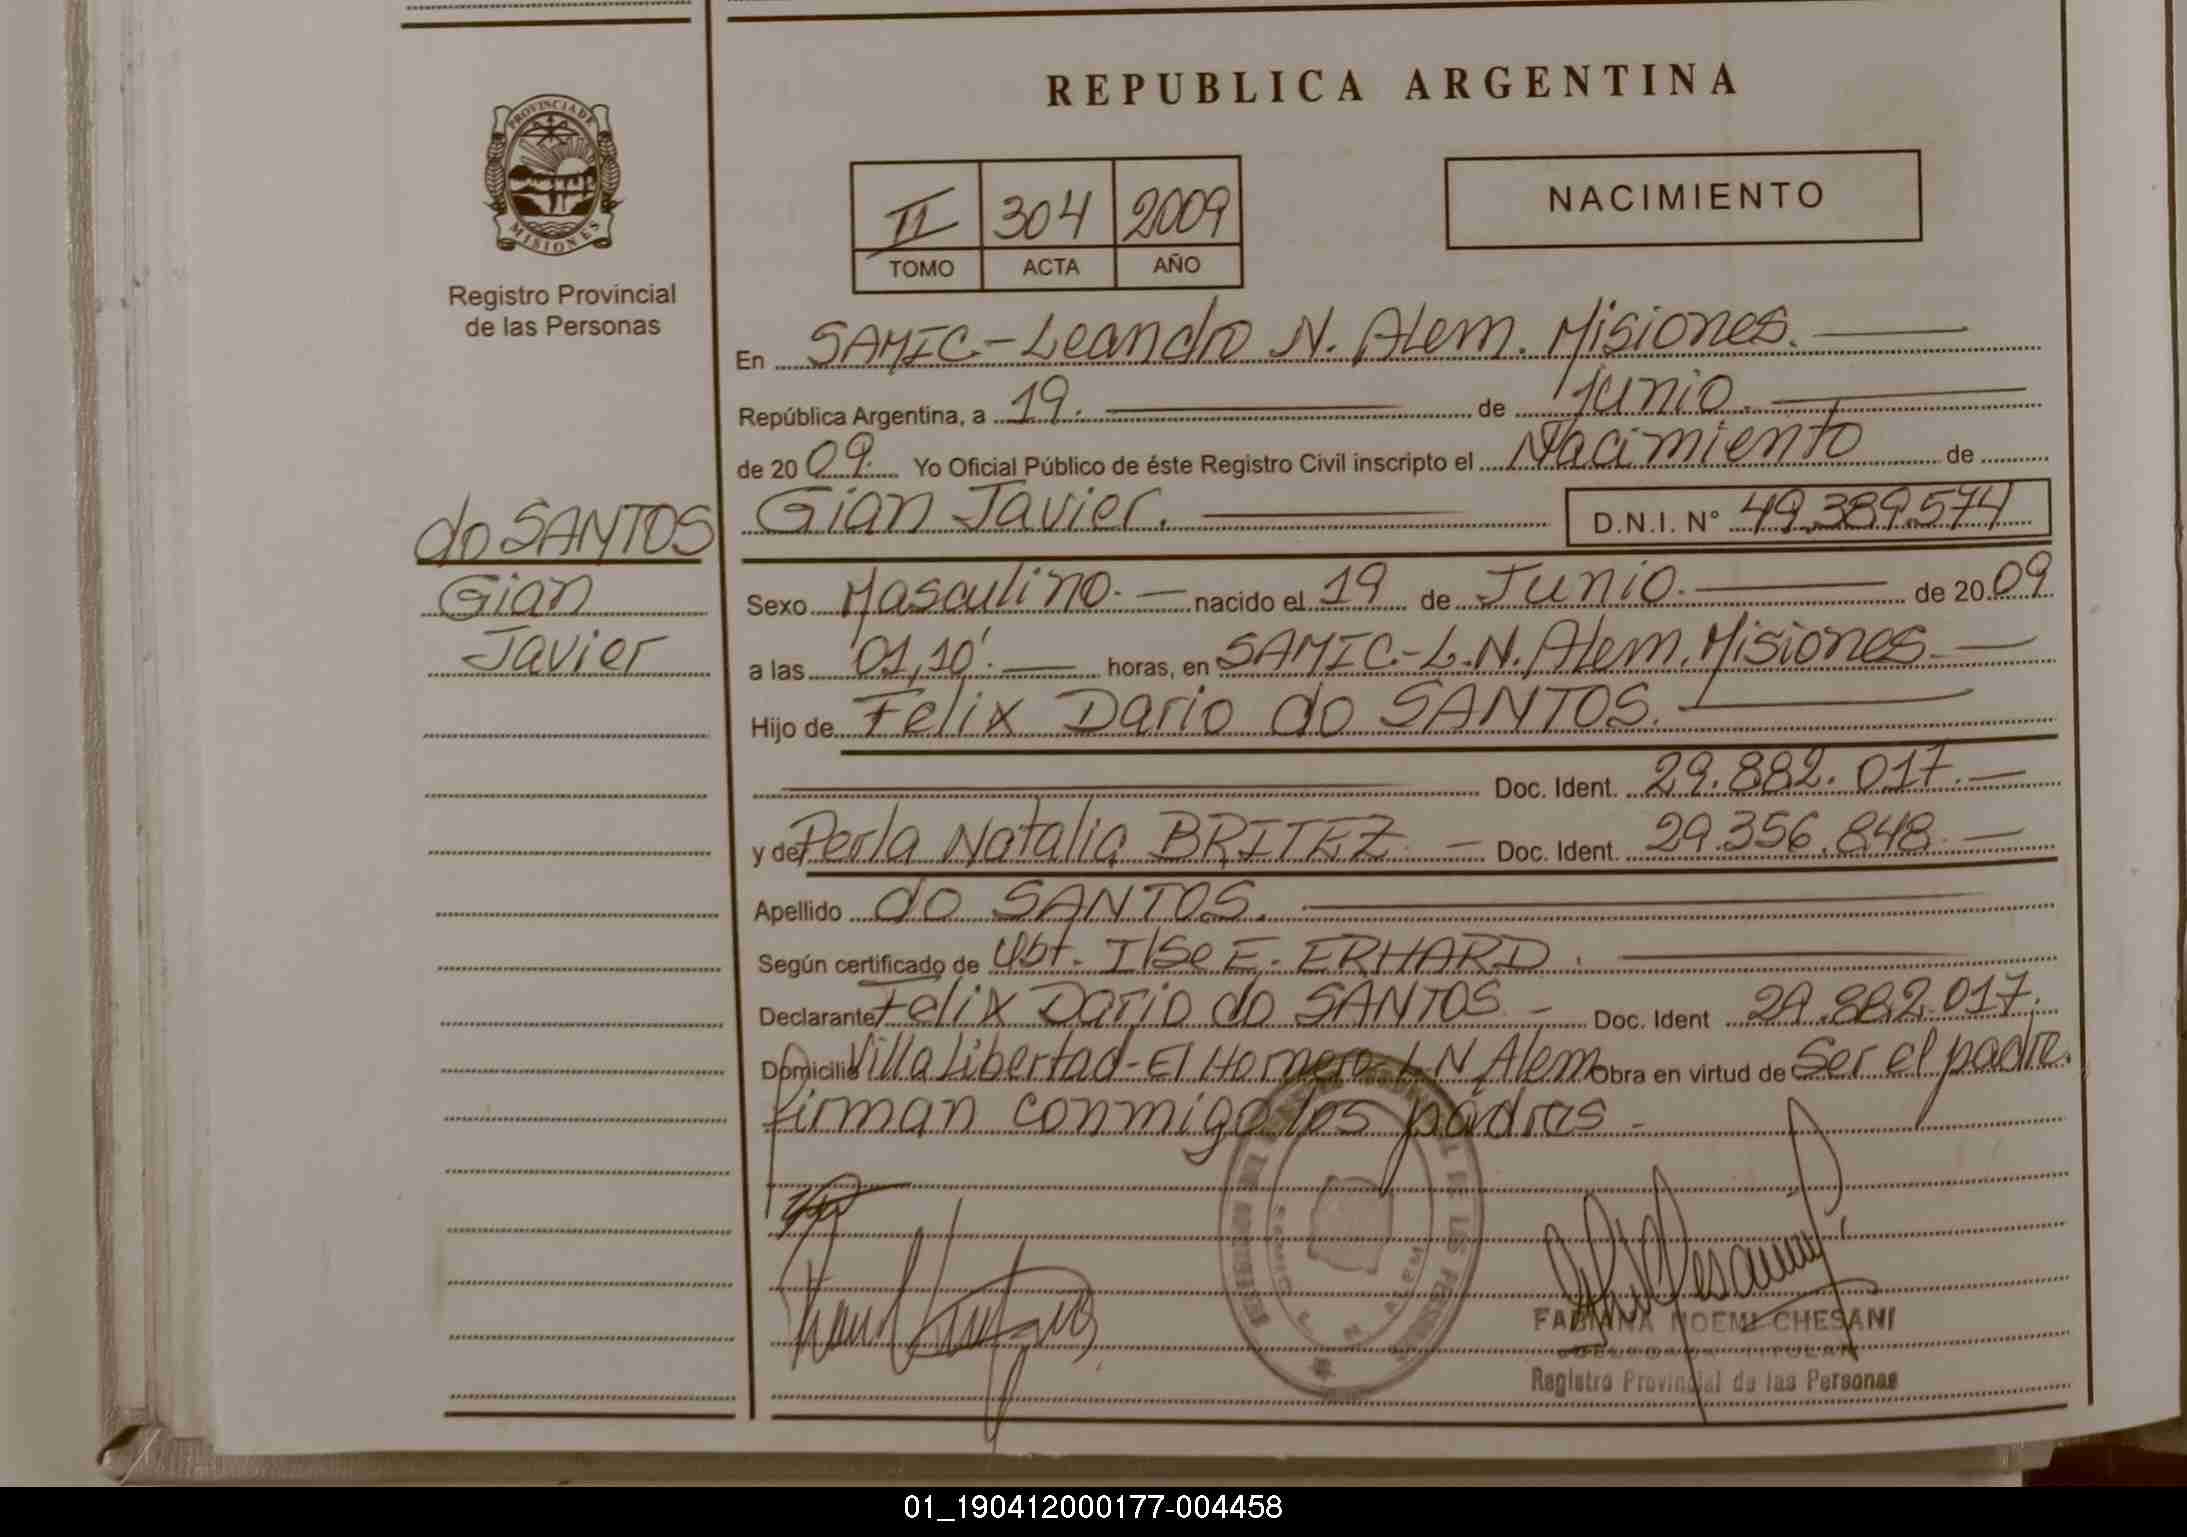 REPUBLICA ARGENTINA
PROVINCIA DE
MISIONES
Registro Provincial
de las Personas
II 304 2009
TOMO ACTA AÑO
NACIMIENTO
En SAMIC-Leandro N. Alem. Misiones.
República Argentina, a 19. de junio.
de 20 09. Yo Oficial Público de éste Registro Civil inscripto el Nacimiento de
Gian Javier. D.N.I. N° 49.389.574
do SANTOS
Gian
Javier
Sexo Masculino. nacido el 19 de Junio. de 20 09
a las 01,10'. horas, en SAMIC.-L.N. Alem. Misiones.
Hijo de Felix Dario do SANTOS.
Doc. Ident. 29.882.017.
y de Perla Natalia BRITEZ Doc. Ident. 29.356.848.
Apellido do SANTOS.
Según certificado de Obt. Ilse E. ERHARD.
Declarante Felix Dario do SANTOS Doc. Ident 29.882.017.
Domicilio Villa Libertad-El Hornero L N Alem Obra en virtud de Ser el padre.
firman conmigo los padres
FABIANA NOEMI CHESANI
TITULAR
Registro Provincial de las Personas
01_190412000177-004458